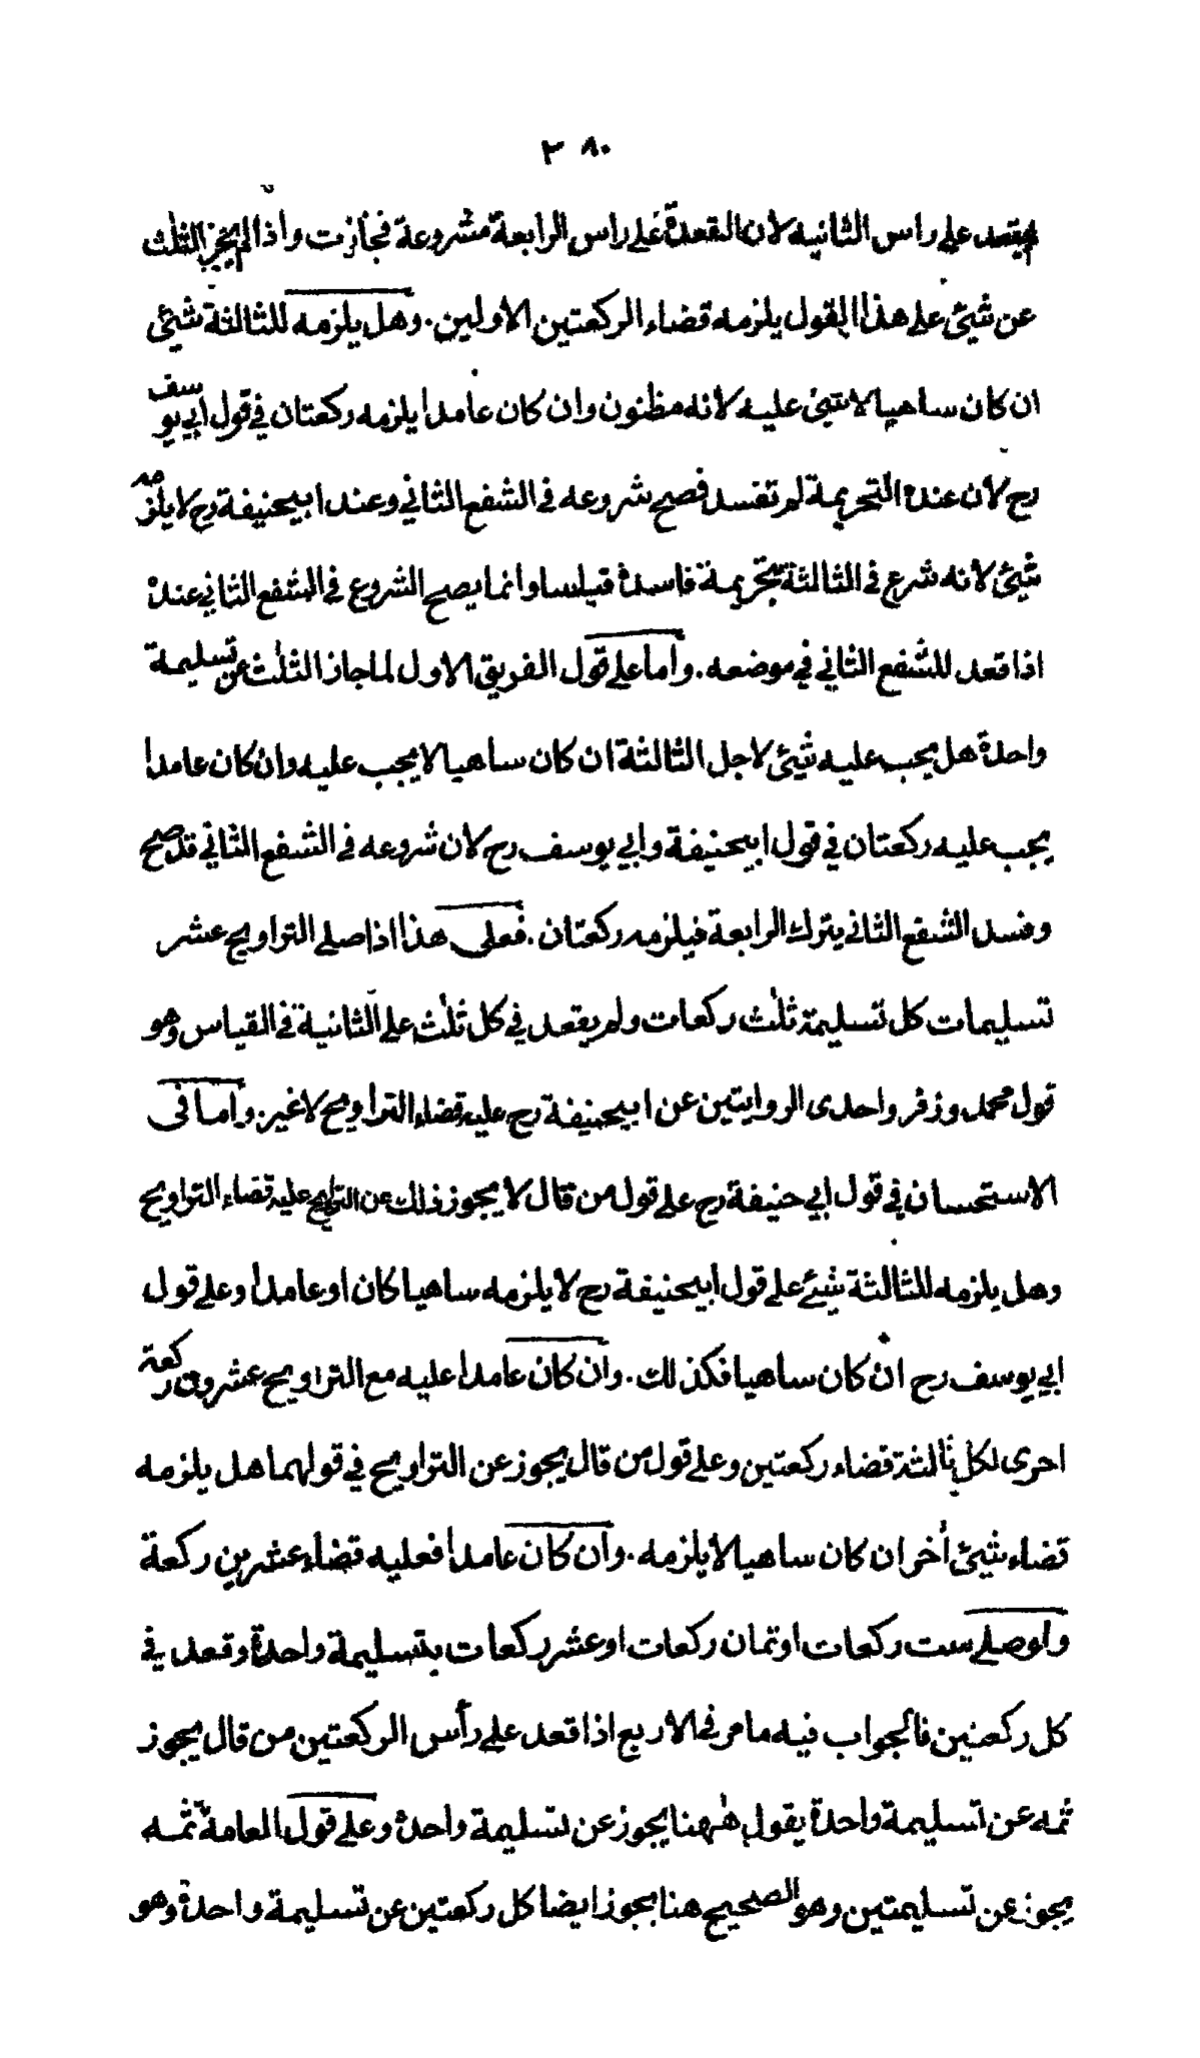 ٢٨٠
لم يقعد على راس الثانيه لان القعدة على راس الرابعة مشروعة فجازت واذا لم يجز الثلث
عن شيئ على هذا القول يلزمه قضاء الركعتين الاولين . وهل يلزمه للثالثة شيئ
ان كان ساهيا لا شيئ عليه لانه مظنون وان كان عامدا يلزمه ركعتان في قول ابي يوسف
رح لان عنده التحريمة لم تفسد فصح شروعه في الشفع الثاني وعند ابيحنيفة رح لا يلزمه
شيئ لانه شرع في الثالثة بتحريمة فاسدة قياسا وانما يصح الشروع في الشفع الثاني عنده
اذا قعد للشفع الثاني في موضعه . واما على قول الفريق الاول لما جاز الثلث عن تسليمة
واحدة هل يجب عليه شيئ لاجل الثالثة ان كان ساهيا لا يجب عليه وان كان عامدا
يجب عليه ركعتان في قول ابيحنيفة وابي يوسف رح لان شروعه في الشفع الثاني قد صح
وفسد الشفع الثاني بترك الرابعة فيلزمه ركعتان . فعلى هذا اذا صلى التراويح عشر
تسليمات كل تسليمة ثلث ركعات ولم يقعد في كل ثلث على الثانية في القياس وهو
قول محمد وزفر واحدى الروايتين عن ابيحنيفة رح عليه قضاء التراويح لا غير . واما في
الاستحسان في قول ابي حنيفة رح على قول من قال لا يجوز ذلك عن التراويح عليه قضاء التراويح
وهل يلزمه للثالثة شيئ على قول ابيحنيفة رح لا يلزمه ساهيا كان او عامدا وعلى قول
ابي يوسف رح ان كان ساهيا فكذلك . وان كان عامدا عليه مع التراويح عشرون ركعة
اخرى لكل ثالثة قضاء ركعتين وعلى قول من قال يجوز عن التراويح في قولهما هل يلزمه
قضاء شيئ أخر ان كان ساهيا لا يلزمه . وان كان عامدا فعليه قضاء عشرين ركعة
ولو صلى ست ركعات او ثمان ركعات او عشر ركعات بتسليمة واحدة وقعد في
كل ركعتين فالجواب فيه ما مر في الاربع اذا قعد على رأس الركعتين من قال يجوز
ثمه عن تسليمة واحدة يقول ههنا يجوز عن تسليمة واحدة وعلى قول العامة ثمه
يجوز عن تسليمتين وهو الصحيح هنا يجوز ايضا كل ركعتين عن تسليمة واحدة وهو